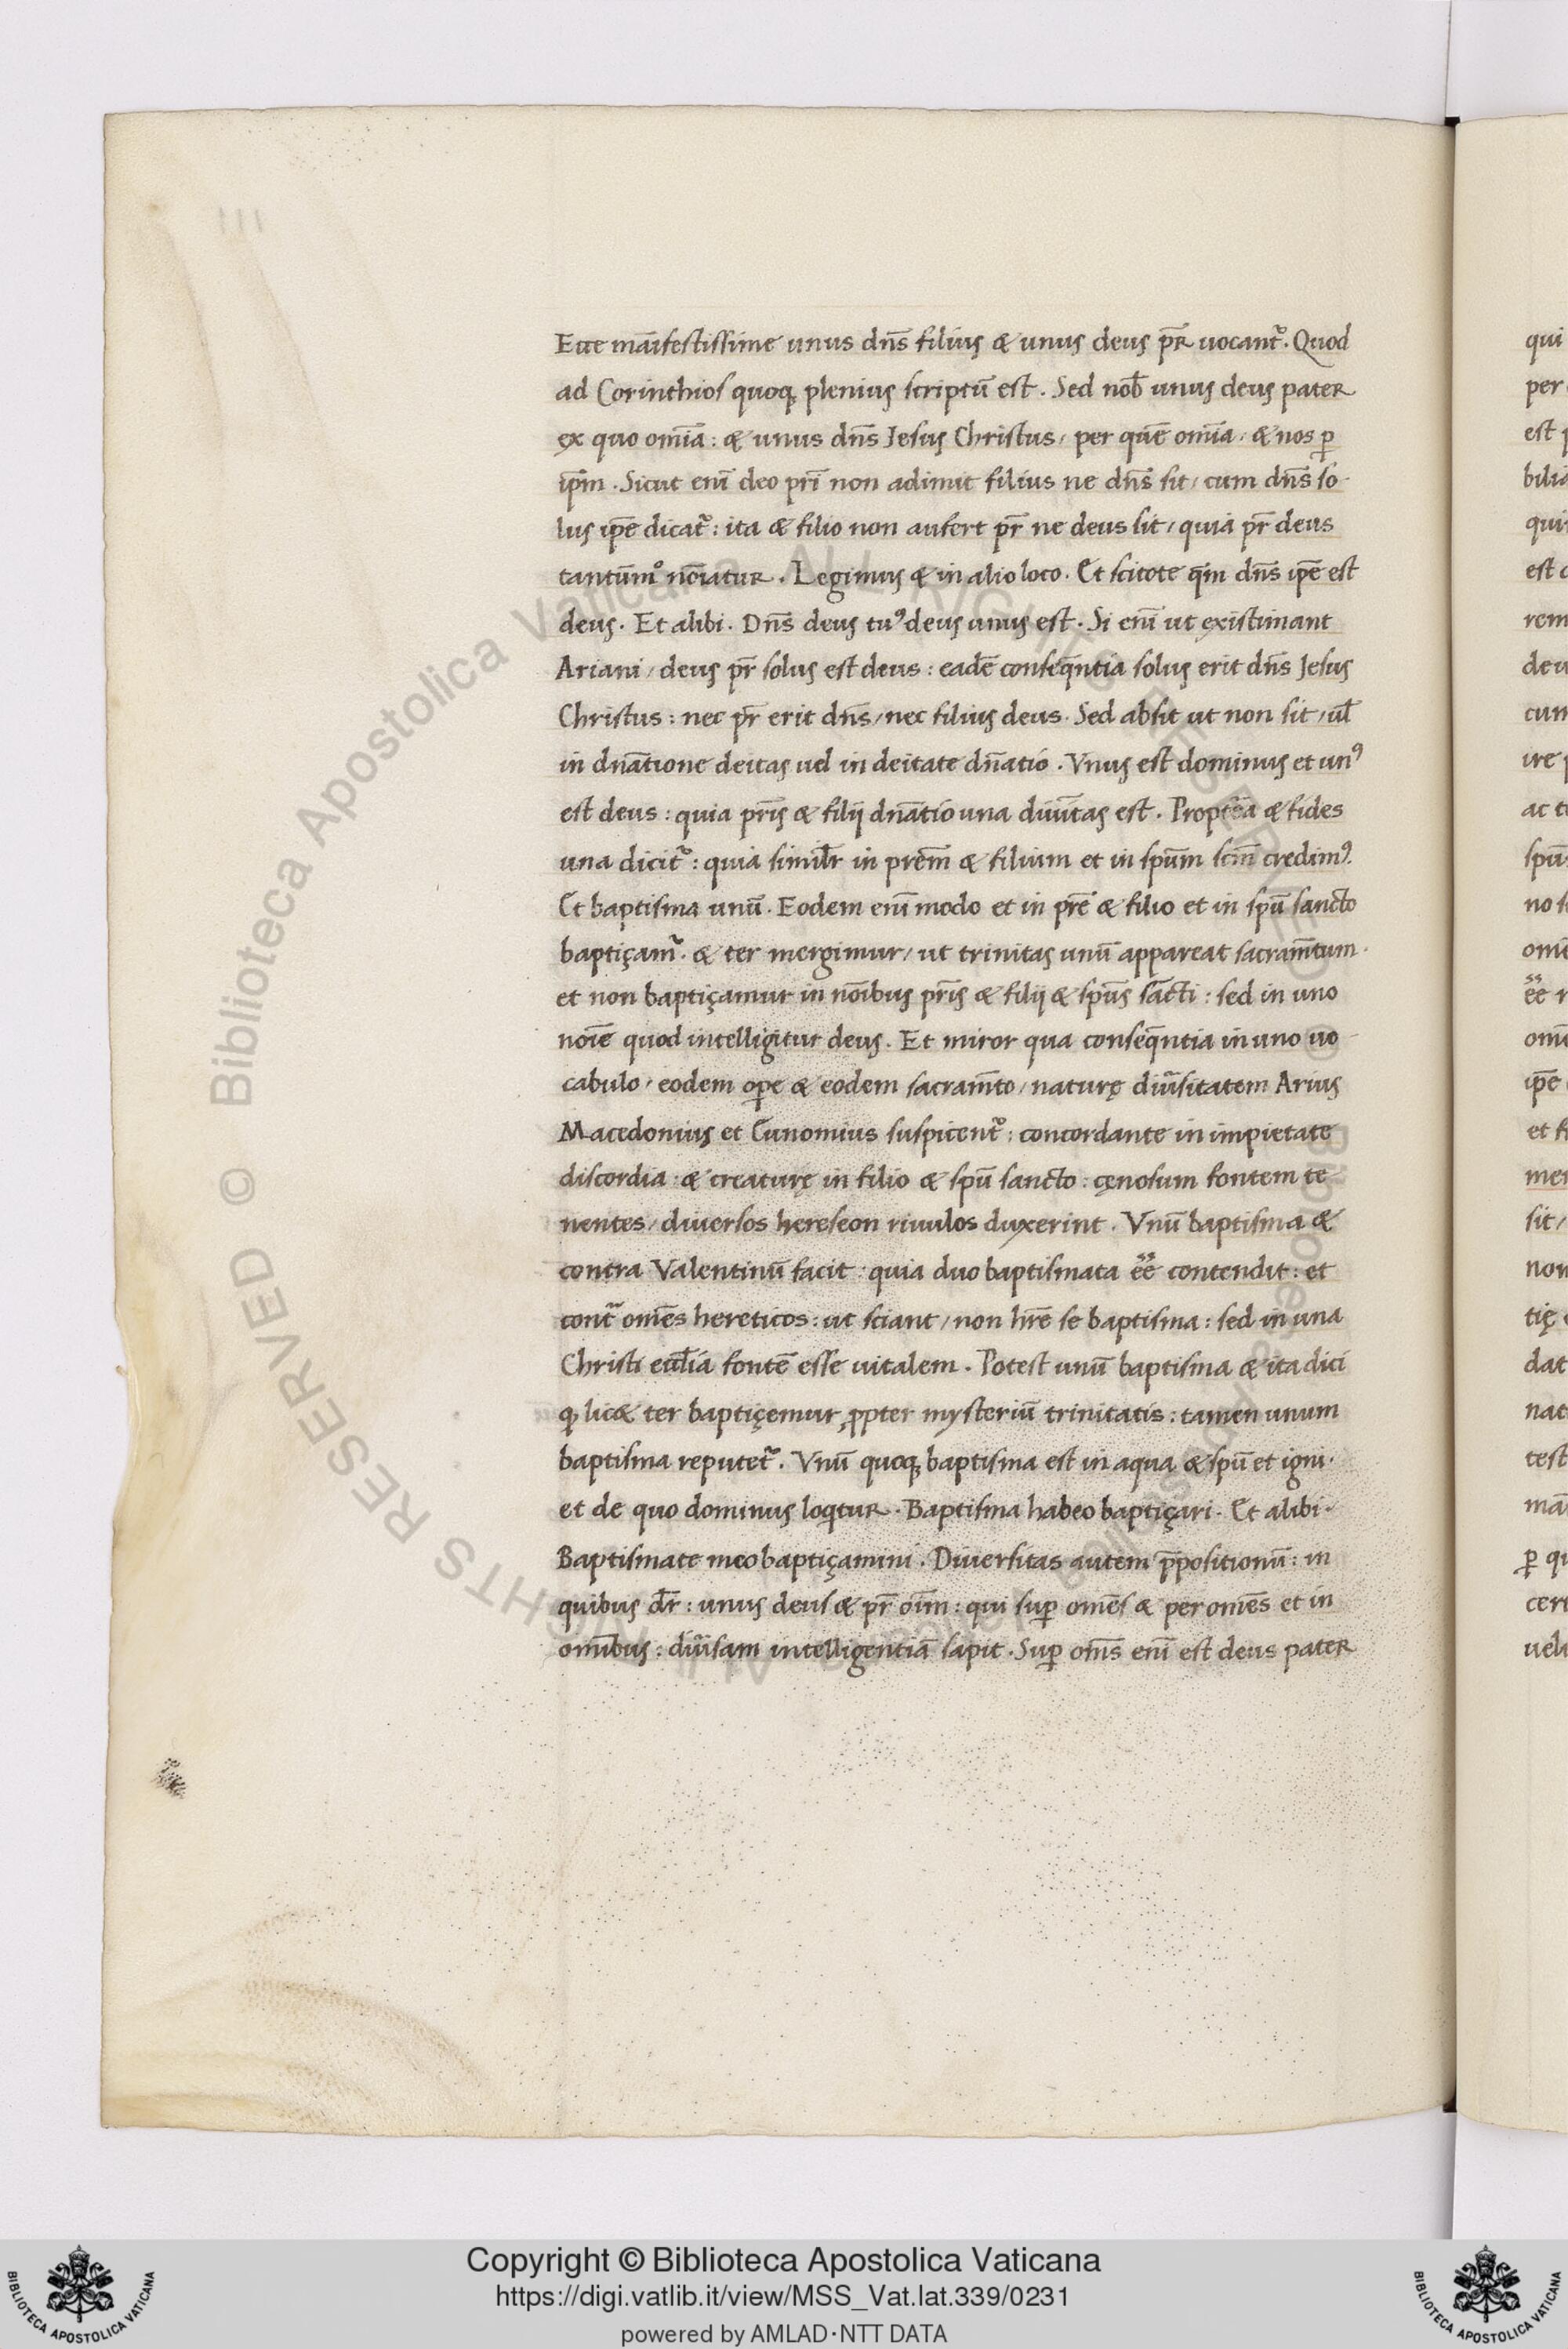 Ecce māifestissime unus dn̄s filius & unus deus pr̄ uocant᷑. Quod
ad Corinthios quoq; plenius scriptū est. Sed nob̄ unus deus pater
ex quo om̄ia: & unus dn̄s Jesus Christus, per quē om̄ia, & nos ꝑ
ip̄m. Sicut eni̅ deo pr̄i non adimit filius ne dn̄s sit, cum dn̄s so-
lus ip̄e dicat᷑: ita & filio non aufert pr̄ ne deus sit, quia pr̄ deus
tantūm° nōiatur. Legimus & in alio loco. Et scitote qm̄ dn̄s ip̄e est
deus. Et alibi. Dn̄s deus tuꝰ deus unus est. Si eni̅ ut existimant
Ariani, deus pr̄ solus est deus: eadē conseq̄ntia solus erit dn̄s Jesus
Christus: nec pr̄ erit dn̄s, nec filius deus. Sed absit ut non sit, ul̄
in dn̄atione deitas uel in deitate dn̄atio. Vnus est dominus et unꝰ
est deus: quia pr̄is & filij dn̄atio una diuīitas est. Propt̄ea & fides
una dicit᷑: quia simil̄r in prēm & filium et in sp̄um scm̄ credimꝰ.
Et baptisma unū. Eodem eni̅ modo et in prē & filio et in sp̄u sancto
baptiçam᷑. & ter mergimur, ut trinitas unū appareat sacram̄tum.
et non baptiçamur in nōibus pr̄is & filij & sp̄us sācti: sed in uno
nōie quod intelligitur deus. Et miror qua conseq̄ntia in uno uo-
cabulo, eodem oꝑe & eodem sacram̄to, naturę diūsitatem Arius
Macedonius et Eunomius suspicent᷑: concordante in impietate
discordia & creaturę in filio & sp̄u sancto: cęnosum fontem te
nentes, diuersos hereseon riuulos duxerint. Vnū baptisma &
contra Valentinū facit: quia duo baptismata ēē contendit: et
cont᷑ om̄es hereticos: ut sciant, non hr̄e se baptisma: sed in una
Christi ecc̄lia fontē esse uitalem. Potest unū baptisma & ita dici
q; lic& ter baptiçemur ꝓpter mysteriū trinitatis: tamen unum
baptisma reputet᷑. Vnū quoq; baptisma est in aqua & sp̄u et igni.
et de quo dominus loqtur. Baptisma habeo baptiçari. Et alibi.
Baptismate meo baptiçamini. Diuersitas autem p̄positionū: in
quibus dr̄: unus deus & pr̄ oīm: qui suꝑ om̄es & per om̄es et in
om̄ibus: diūsam intelligentiā sapit. Suꝑ om̄s eni̅ est deus pater
qui
per
est
est
deu
cum
ac
no
et
sit
dat
ꝑ qu
uel
Copyright © Biblioteca Apostolica Vaticana
https://digi.vatlib.it/view/MSS_Vat.lat.339/0231
powered by AMLAD·NTT DATA
BIBLIOTECA APOSTOLICA VATICANA
BIBLIOTECA APOSTOLICA VATICANA
© Biblioteca Apostolica Vaticana ALL RIGHTS RESERVED